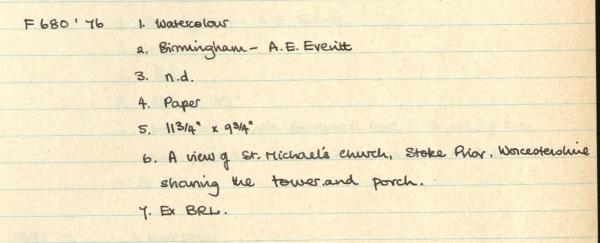 F 680 '76 1. Watercolour
2. Birmingham - A.E. Everitt
3. n.d.
4. Paper
5. 11 3/4" x 9 3/4"
6. A view of St. Michael's church, Stoke Prior, Worcestershire
showing the tower and porch.
7. Ex BRL.